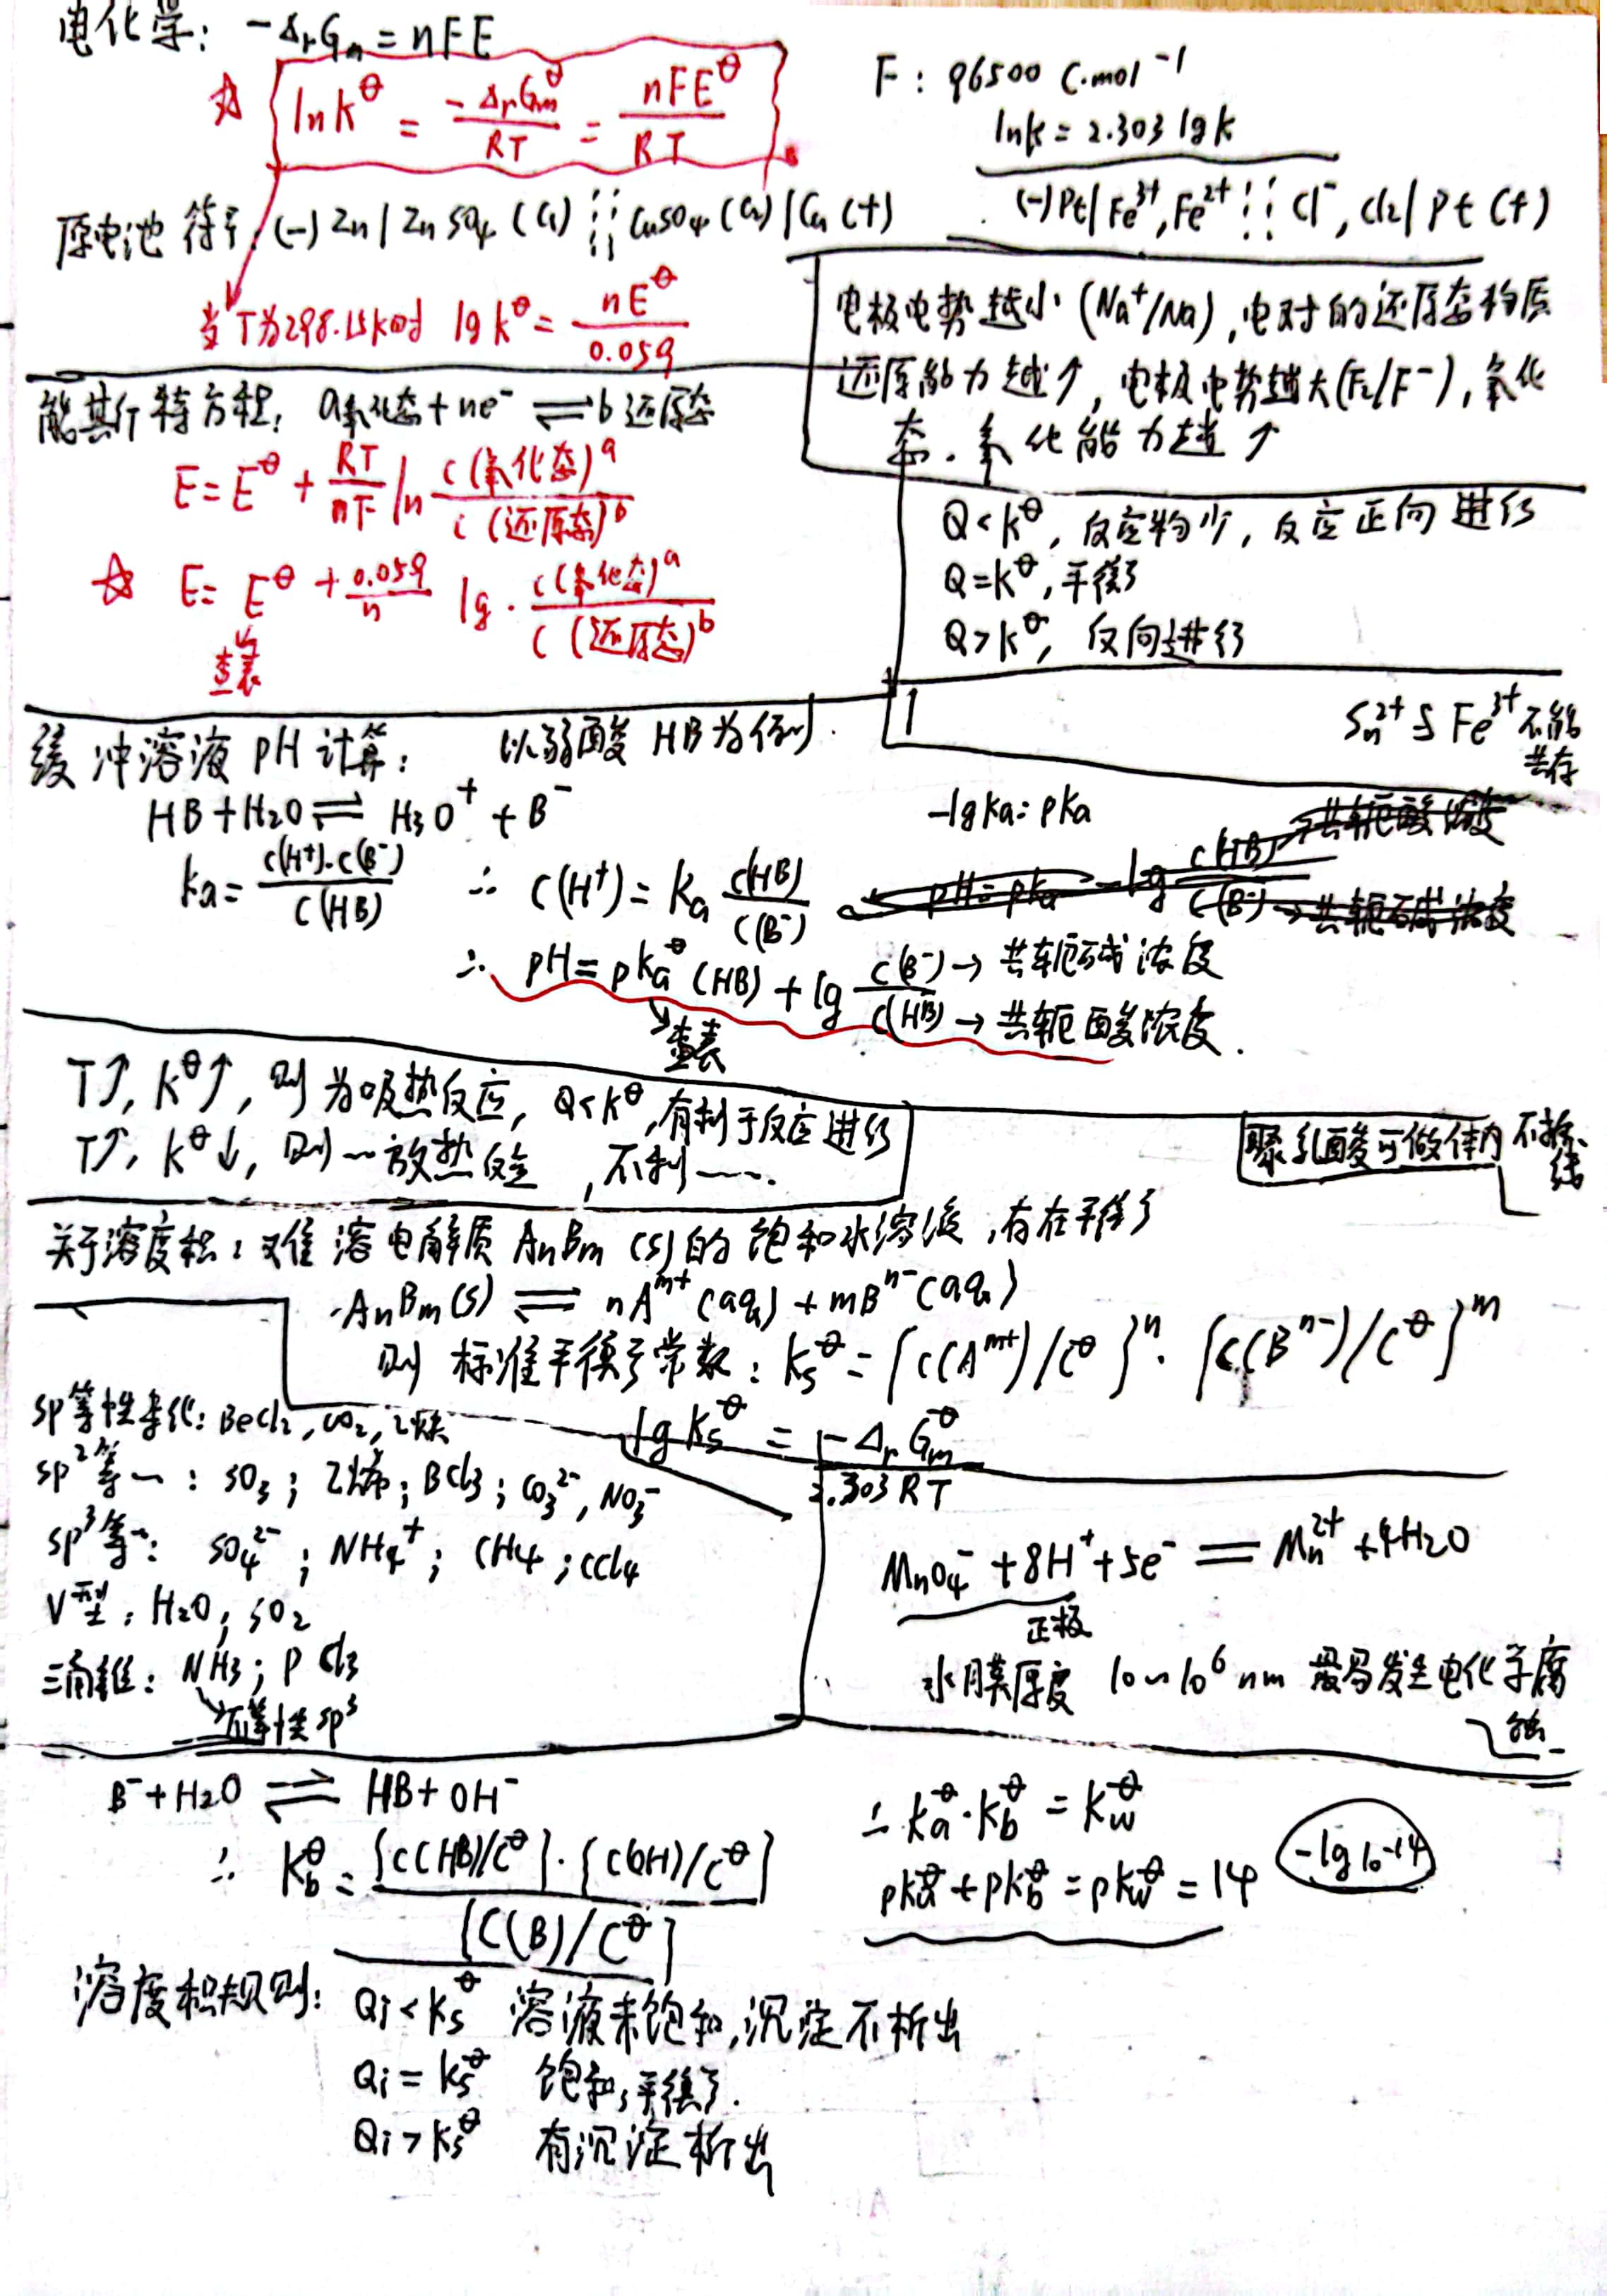 电化学: -ΔrGm = nFE
☆ lnK^θ = -ΔrGm^θ / RT = nFE^θ / RT
F: 96500 C·mol⁻¹
lnk = 2.303 lgk
原电池符号: (-) Zn | ZnSO₄ (C₁) ¦¦ CuSO₄ (C₂) | Cu (+)
(-) Pt | Fe³⁺, Fe²⁺ ¦¦ Cl⁻, Cl₂ | Pt (+)
当T为298.15K时 lgk^θ = nE^θ / 0.059
电极电势越小 (Na⁺/Na), 电对的还原态物质
还原能力越↑, 电极电势越大(F₂/F⁻), 氧化
态. 氧化能力越↑
能斯特方程: a氧化态 + ne⁻ ⇌ b还原态
E = E^θ + RT/nF ln c(氧化态)^a / c(还原态)^b
☆ E = E^θ + 0.059/n lg · c(氧化态)^a / c(还原态)^b
查表
Q < K^θ, 反应物少, 反应正向进行
Q = K^θ, 平衡
Q > K^θ, 反向进行
Sn²⁺与Fe³⁺不能
共存
缓冲溶液pH计算: 以弱酸HB为例.
HB + H₂O ⇌ H₃O⁺ + B⁻
-lgKa = pKa
Ka = c(H⁺)·c(B⁻) / c(HB) ∴ c(H⁺) = Ka c(HB) / c(B⁻)
pH = pKa - lg c(HB) / c(B⁻)
→共轭酸浓度
→共轭碱浓度
∴ pH = pKa^θ (HB) + lg c(B⁻) / c(HB)
→共轭碱浓度
→共轭酸浓度.
查表
T↑, K^θ↑, 则为吸热反应, Q < K^θ, 有利于反应进行
T↑, K^θ↓, 则～放热反应, 不利…….
聚乳酸可做体内不拆
线
关于溶度积: 难溶电解质 AnBm (s)的饱和水溶液, 存在平衡
AnBm(s) ⇌ nA^m+ (aq) + mB^n- (aq)
则标准平衡常数: Ks^θ = [c(A^m+)/c^θ]^n · [c(B^n-)/c^θ]^m
lgKs^θ = -ΔrGm^θ / 2.303RT
sp等性杂化: BeCl₂, CO₂, 乙炔
sp²等～: SO₃; 乙烯; BCl₃; CO₃²⁻, NO₃⁻
sp³等～: SO₄²⁻; NH₄⁺; CH₄; CCl₄
V型: H₂O; SO₂
三角锥: NH₃; PCl₃
不等性sp³
MnO₄⁻ + 8H⁺ + 5e⁻ = Mn²⁺ + 4H₂O
正极
水膜厚度 10~10⁶ nm 最易发生电化学腐
蚀
B⁻ + H₂O ⇌ HB + OH⁻
∴ Kb^θ = [c(HB)/c^θ]·[c(OH)/c^θ] / [c(B)/c^θ]
∴ Ka^θ·Kb^θ = Kw^θ
pKa^θ + pKb^θ = pKw^θ = 14
-lg10⁻¹⁴
溶度积规则: Qi < Ks^θ 溶液未饱和, 沉淀不析出
Qi = Ks^θ 饱和, 平衡.
Qi > Ks^θ 有沉淀析出